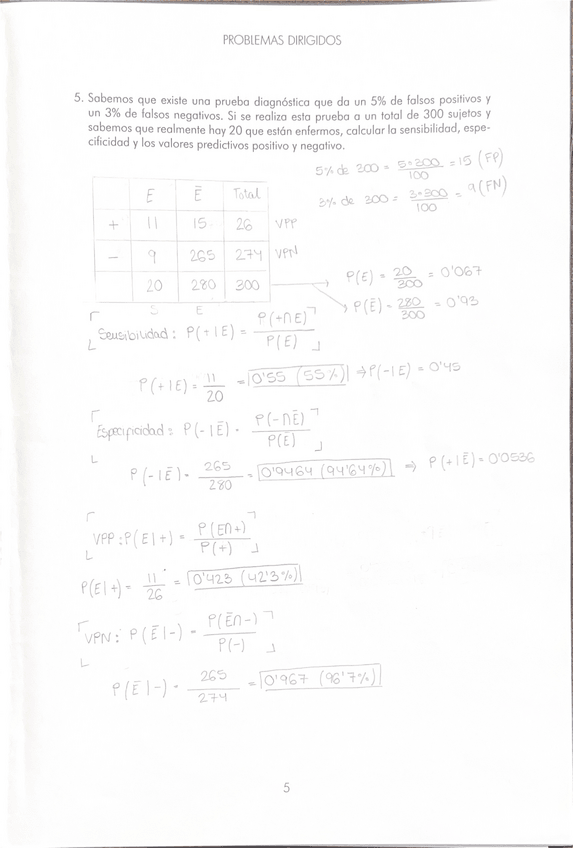 PROBLEMAS DIRIGIDOS
5. Sabemos que existe una prueba diagnóstica que da un 5% de falsos positivos y
un 3% de falsos negativos. Si se realiza esta prueba a un total de 300 sujetos y
sabemos que realmente hay 20 que están enfermos, calcular la sensibilidad, espe-
cificidad y los valores predictivos positivo y negativo.
5% de 300 = 5·300/100 = 15 (FP)
3% de 300 = 3·300/100 = 9 (FN)
E Ē Total
+ 11 15 26 VPP
- 9 265 274 VPN
20 280 300
S E
P(E) = 20/300 = 0'067
P(Ē) = 280/300 = 0'93
Sensibilidad: P(+|E) = P(+∩E)/P(E)
P(+|E) = 11/20 = 0'55 (55%) ⇒ P(-|E) = 0'45
Especificidad: P(-|Ē) = P(-∩Ē)/P(Ē)
P(-|Ē) = 265/280 = 0'9464 (94'64%) ⇒ P(+|Ē) = 0'0536
VPP: P(E|+) = P(E∩+)/P(+)
P(E|+) = 11/26 = 0'423 (42'3%)
VPN: P(Ē|-) = P(Ē∩-)/P(-)
P(Ē|-) = 265/274 = 0'967 (96'7%)
5